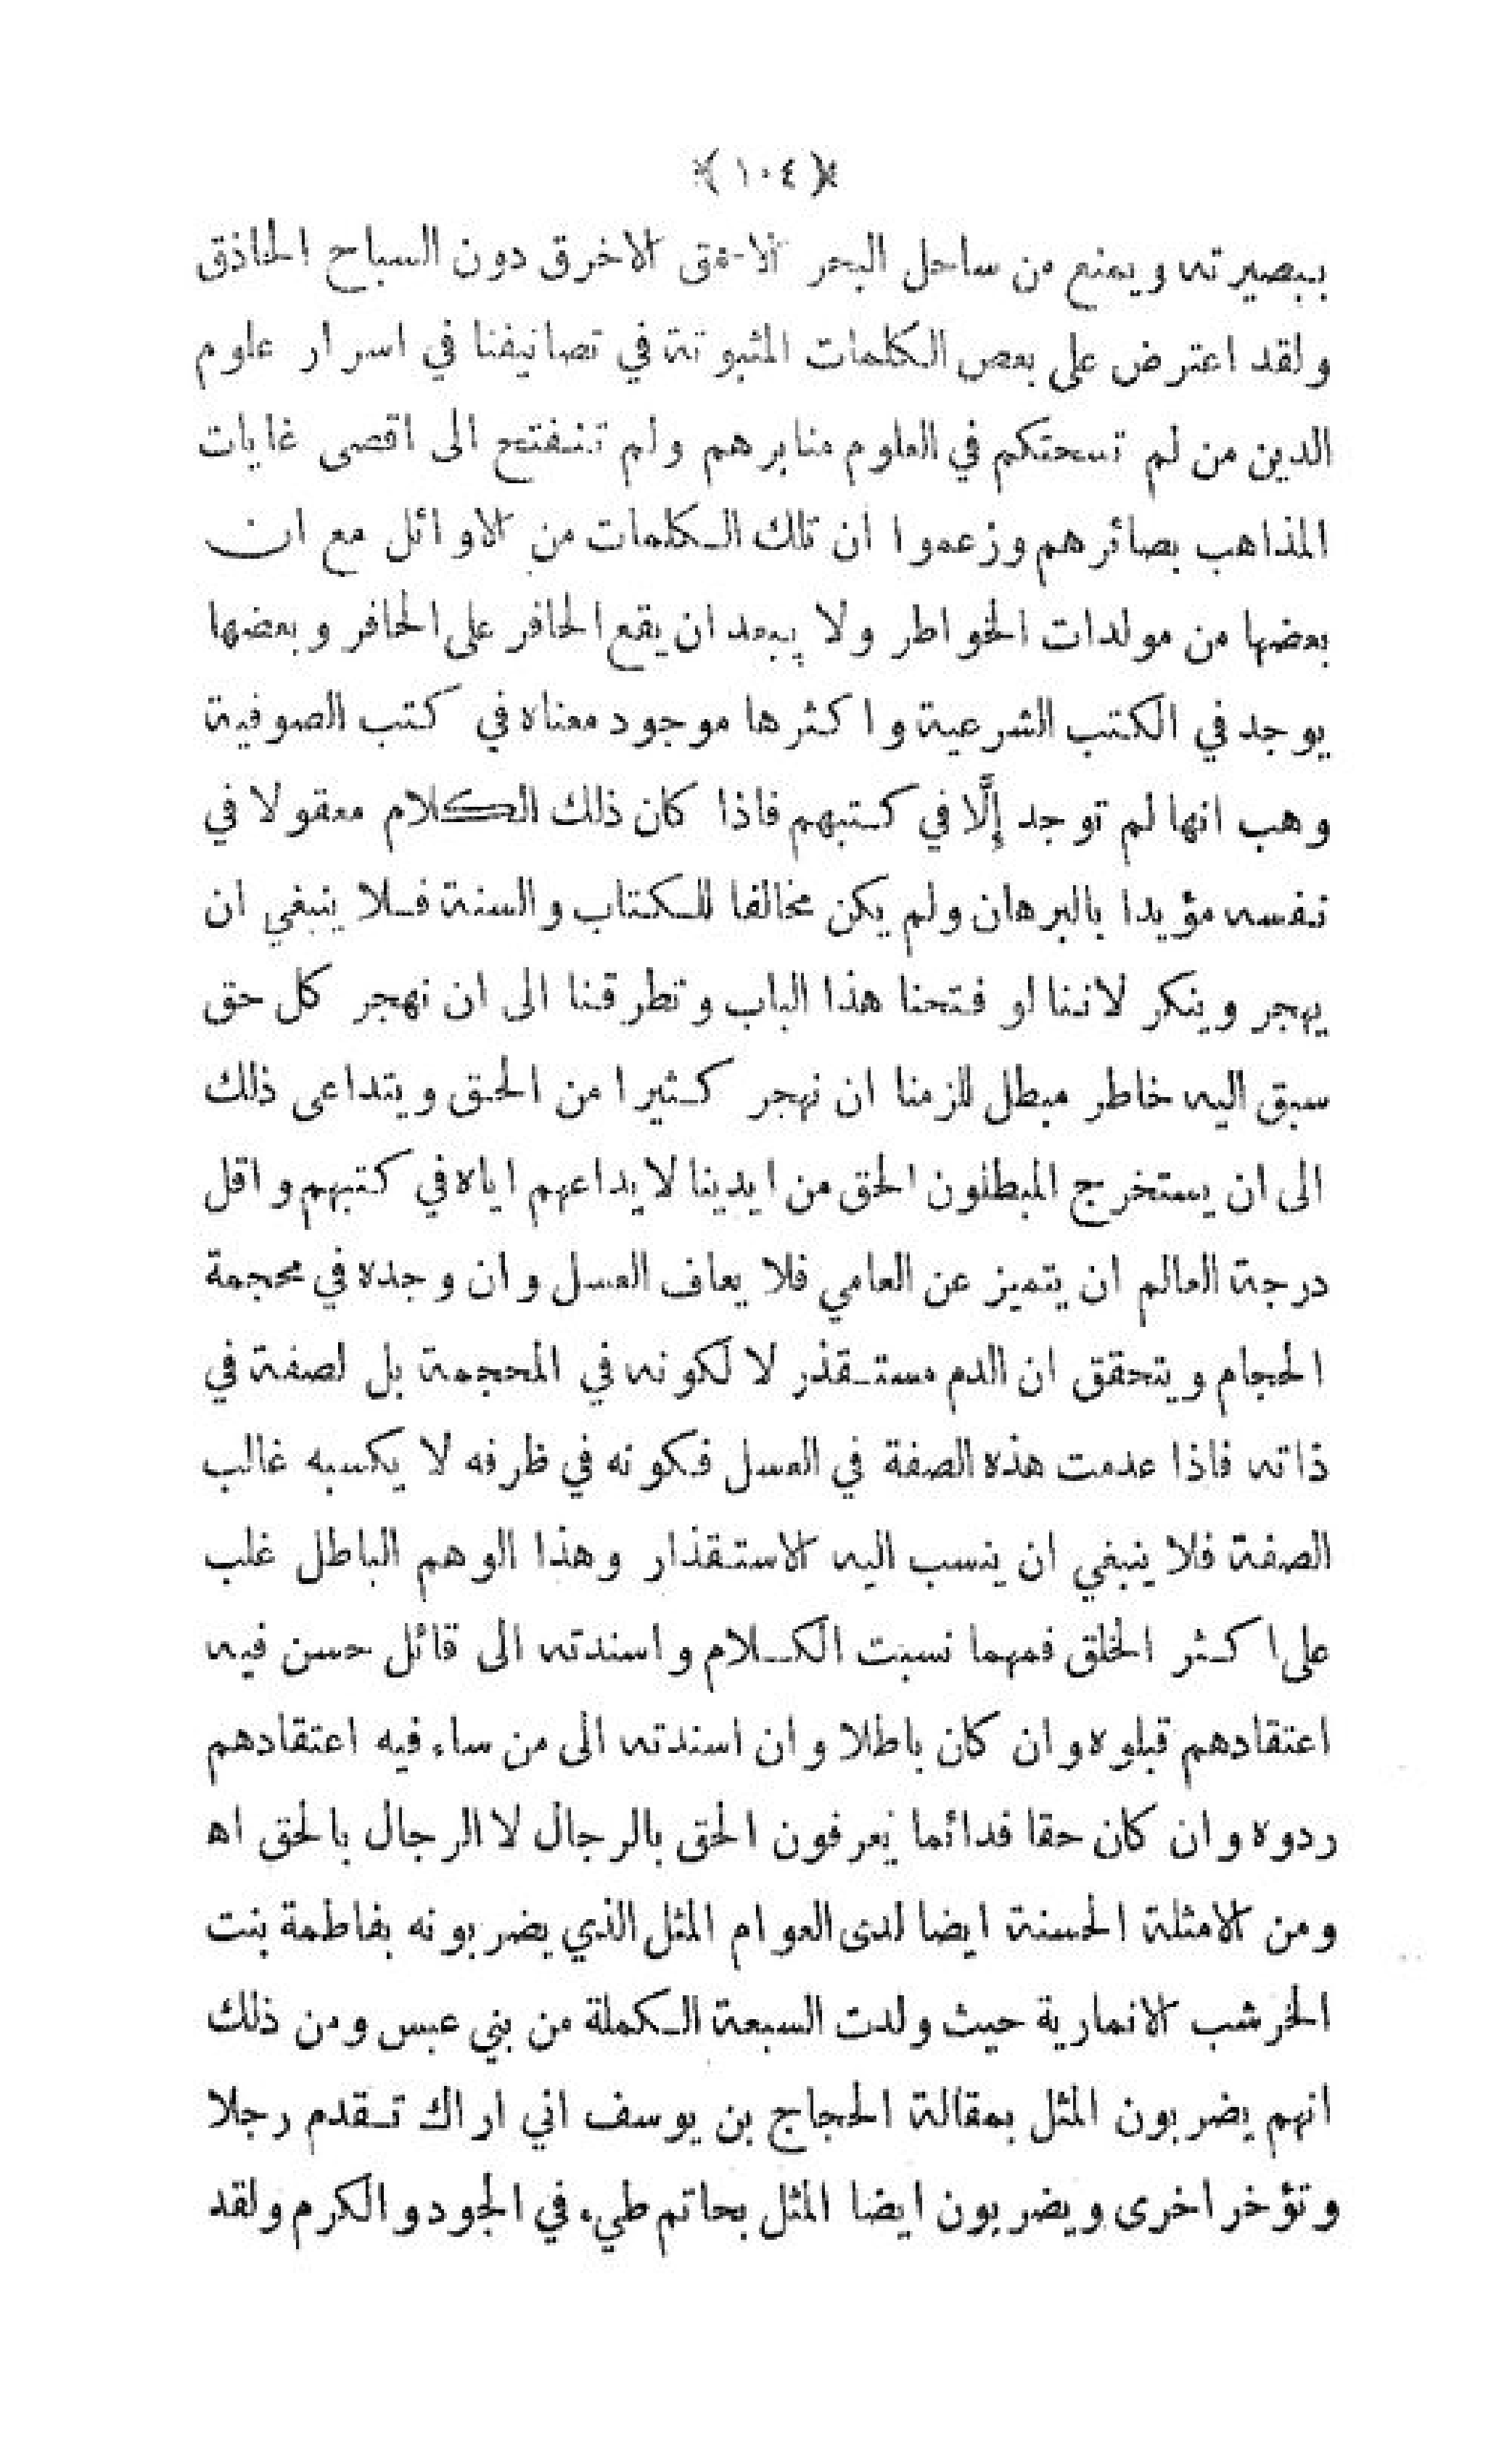 ﴿ ١٠٤ ﴾
ببصيرته ويمنع من ساحل البحر الاخرق دون السباح الحاذق
ولقد اعترض على بعض الكلمات المثبوتة في تصانيفنا في اسرار علوم
الدين من لم تستحكم في العلوم منابرهم ولم تنفتح الى اقصى غايات
المذاهب بصائرهم وزعموا ان تلك الكلمات من الاوائل مع ان
بعضها من مولدات الخواطر ولا يبعد ان يقع الحافر على الحافر وبعضها
يوجد في الكتب الشرعية واكثرها موجود معناه في كتب الصوفية
وهب انها لم توجد إلَّا في كتبهم فاذا كان ذلك الكلام معقولا في
نفسه مؤيدا بالبرهان ولم يكن مخالفا للكتاب والسنة فلا ينبغي ان
يهجر وينكر لاننا لو فتحنا هذا الباب وتطرقنا الى ان نهجر كل حق
سبق اليه خاطر مبطل للزمنا ان نهجر كثيرا من الحق ويتداعى ذلك
الى ان يستخرج المبطلون الحق من ايدينا لايداعهم اياه في كتبهم واقل
درجة العالم ان يتميز عن العامي فلا يعاف العسل وان وجده في محجمة
الحجام ويتحقق ان الدم مستقذر لا لكونه في المحجمة بل لصفة في
ذاته فاذا عدمت هذه الصفة في العسل فكونه في ظرفه لا يكسبه غالب
الصفة فلا ينبغي ان ينسب اليه الاستقذار وهذا الوهم الباطل غلب
على اكثر الخلق فمهما نسبت الكلام واسندته الى قائل حسن فيه
اعتقادهم قبلوه وان كان باطلا وان اسندته الى من ساء فيه اعتقادهم
ردوه وان كان حقا فدائما يعرفون الحق بالرجال لا الرجال بالحق اه
ومن الامثلة الحسنة ايضا لدى العوام المثل الذي يضربونه بفاطمة بنت
الخرشب الانمارية حيث ولدت السبعة الكملة من بني عبس ومن ذلك
انهم يضربون المثل بمقالة الحجاج بن يوسف اني اراك تقدم رجلا
وتؤخر اخرى ويضربون ايضا المثل بحاتم طيء في الجود والكرم ولقد